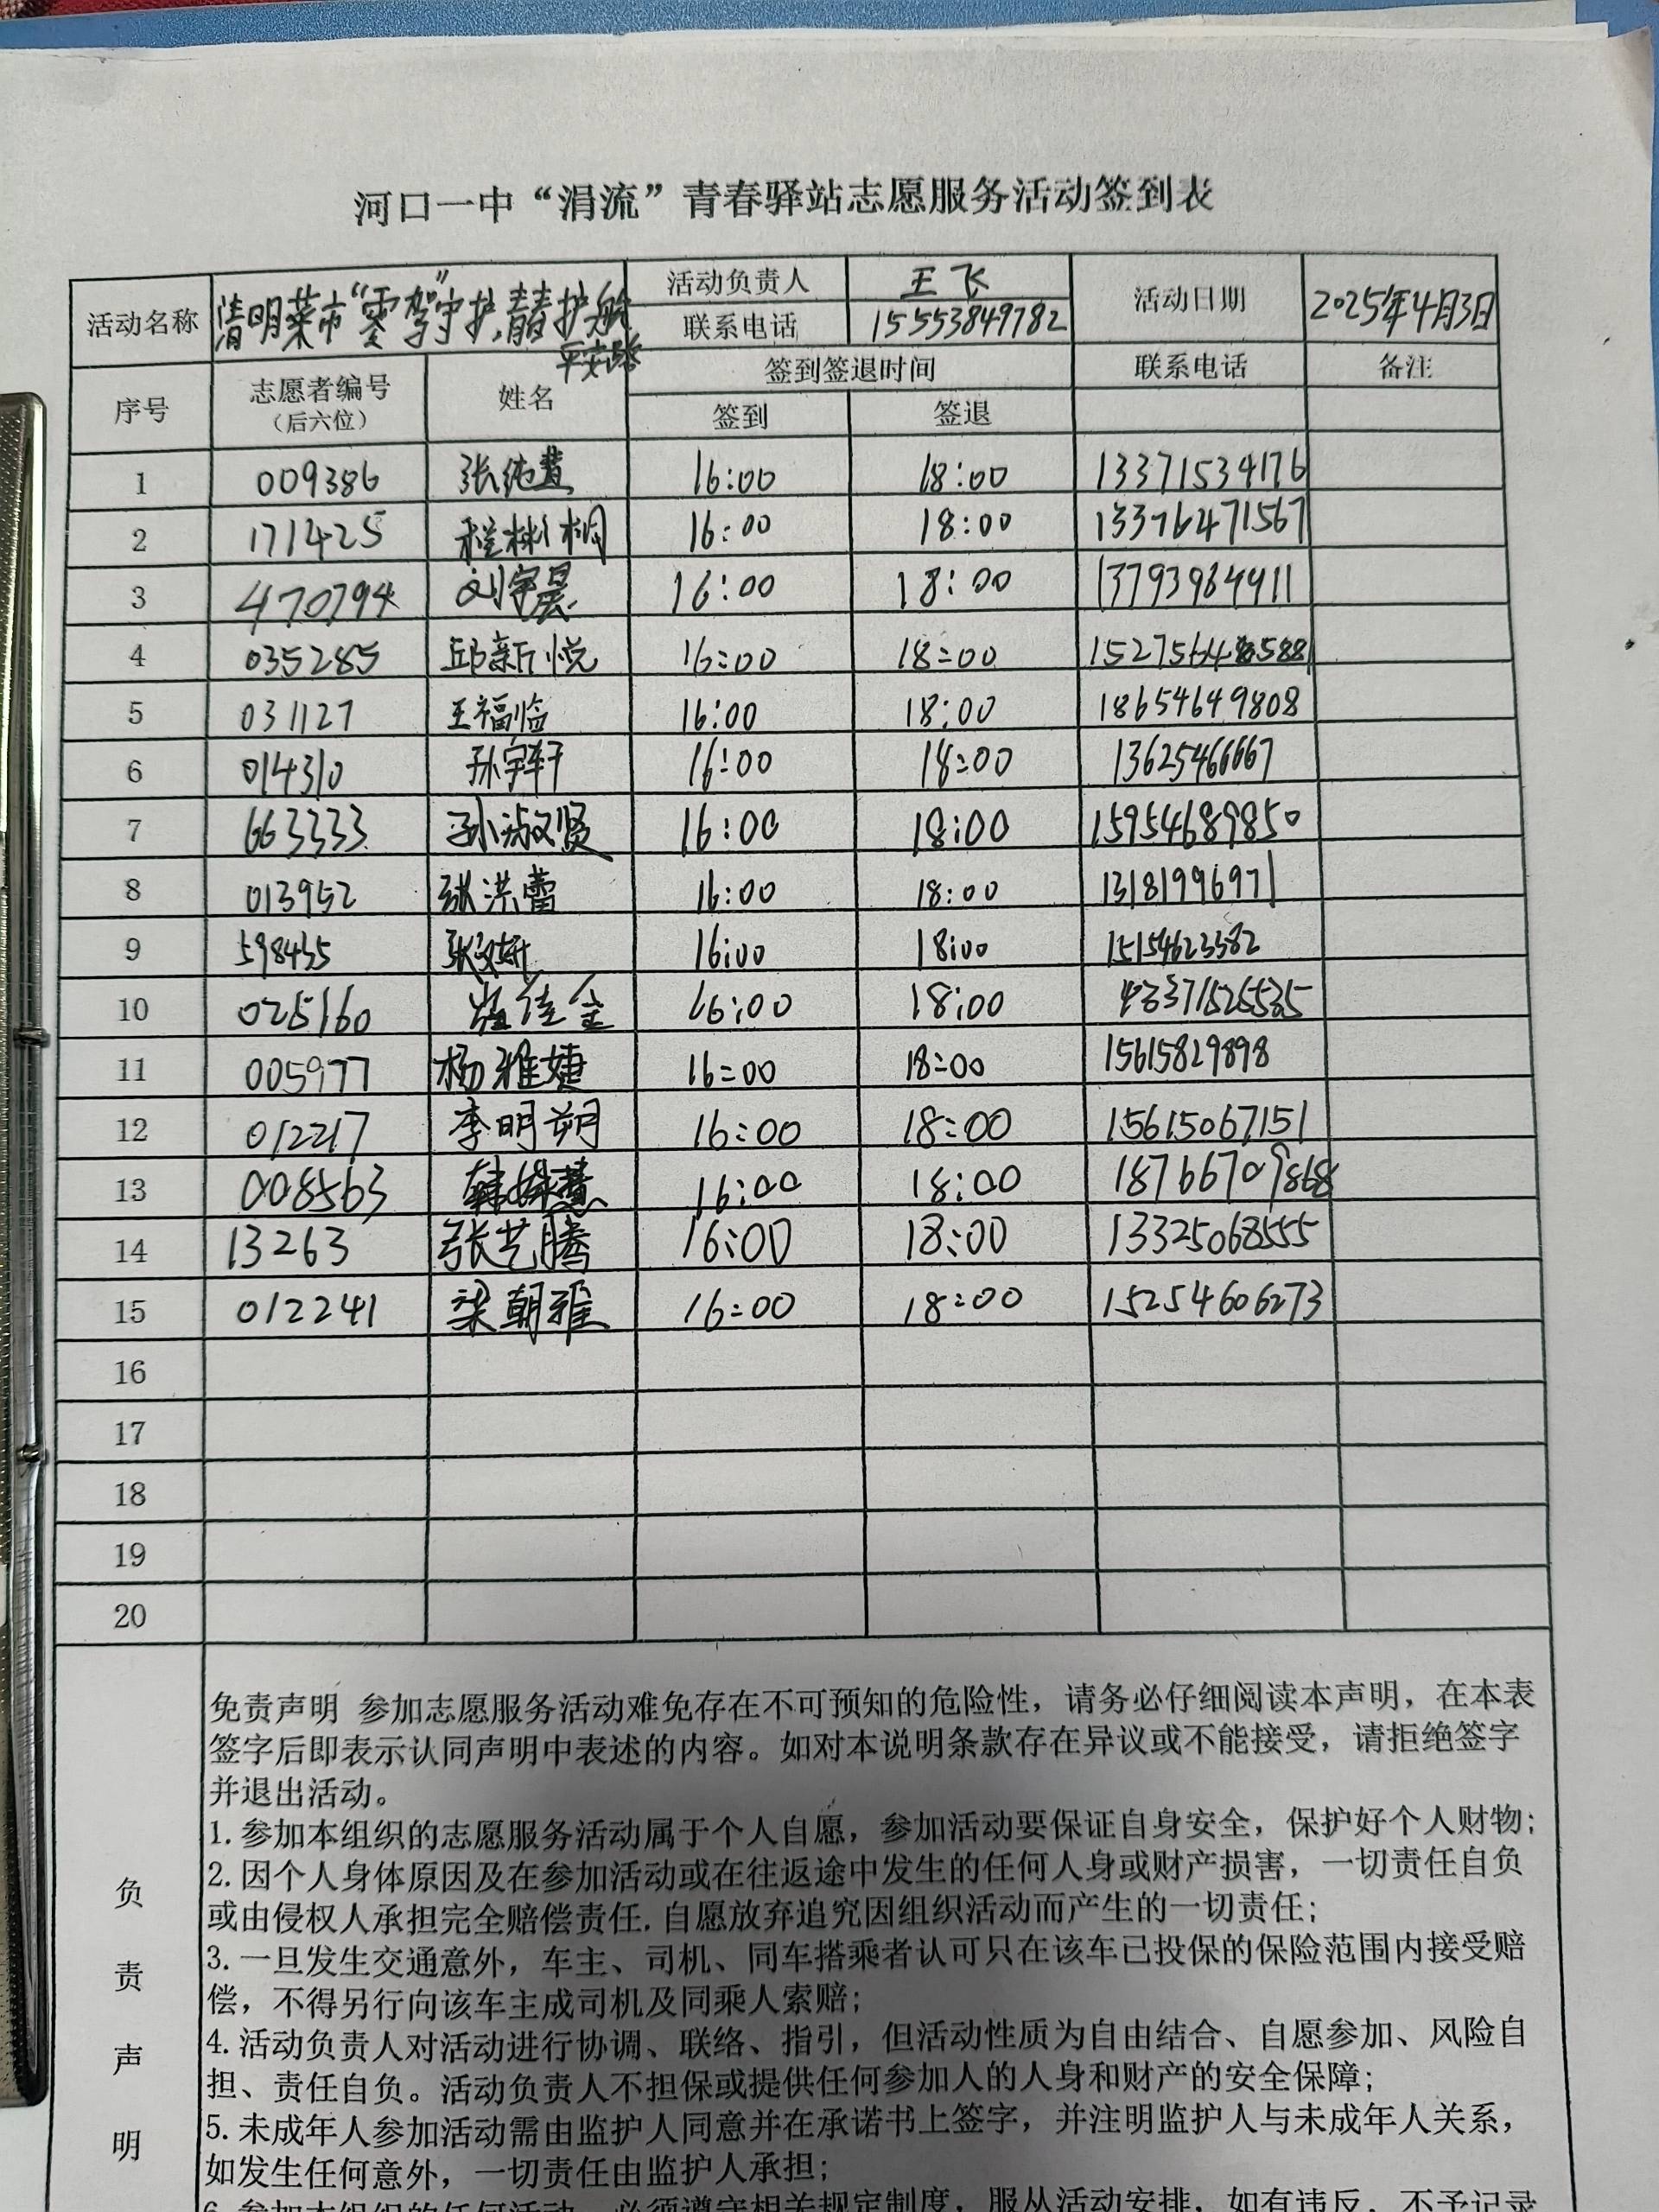 河口一中“涓流”青春驿站志愿服务活动签到表
活动名称 清明菜市“零驾”守护,青春护航 平安路 活动负责人 王飞 活动日期 2025年4月3日
联系电话 15553849782
序号 志愿者编号 姓名 签到签退时间 联系电话 备注
（后六位） 签到 签退
1 009386 张纯慧 16:00 18:00 13371534176
2 171425 16:00 18:00 13376471567
3 470794 刘宇晨 16:00 18:00 13793964911
4 035285 邱新悦 16:00 18:00
5 031127 王福临 16:00 18:00 18654649808
6 014310 孙宇轩 16:00 18:00 13625466667
7 663333 孙淑贤 16:00 18:00 15954689850
8 013952 张洪蕾 16:00 18:00 13181996971
9 598435 张文妍 16:00 18:00 15154623382
10 025160 16:00 18:00
11 005977 杨雅婕 16:00 18:00 15615829898
12 012217 李明朔 16:00 18:00 15615067151
13 008563 16:00 18:00 18766709868
14 13263 张艺腾 16:00 18:00 13325068555
15 012241 梁朝雅 16:00 18:00 15254606273
16
17
18
19
20
负责声明
免责声明 参加志愿服务活动难免存在不可预知的危险性，请务必仔细阅读本声明，在本表
签字后即表示认同声明中表述的内容。如对本说明条款存在异议或不能接受，请拒绝签字
并退出活动。
1.参加本组织的志愿服务活动属于个人自愿，参加活动要保证自身安全，保护好个人财物;
2.因个人身体原因及在参加活动或在往返途中发生的任何人身或财产损害，一切责任自负
或由侵权人承担完全赔偿责任.自愿放弃追究因组织活动而产生的一切责任;
3.一旦发生交通意外，车主、司机、同车搭乘者认可只在该车已投保的保险范围内接受赔
偿，不得另行向该车主成司机及同乘人索赔;
4.活动负责人对活动进行协调、联络、指引，但活动性质为自由结合、自愿参加、风险自
担、责任自负。活动负责人不担保或提供任何参加人的人身和财产的安全保障;
5.未成年人参加活动需由监护人同意并在承诺书上签字，并注明监护人与未成年人关系，
如发生任何意外，一切责任由监护人承担;
6.参加本组织的任何活动，必须遵守相关规定制度，服从活动安排，如有违反，不予记录